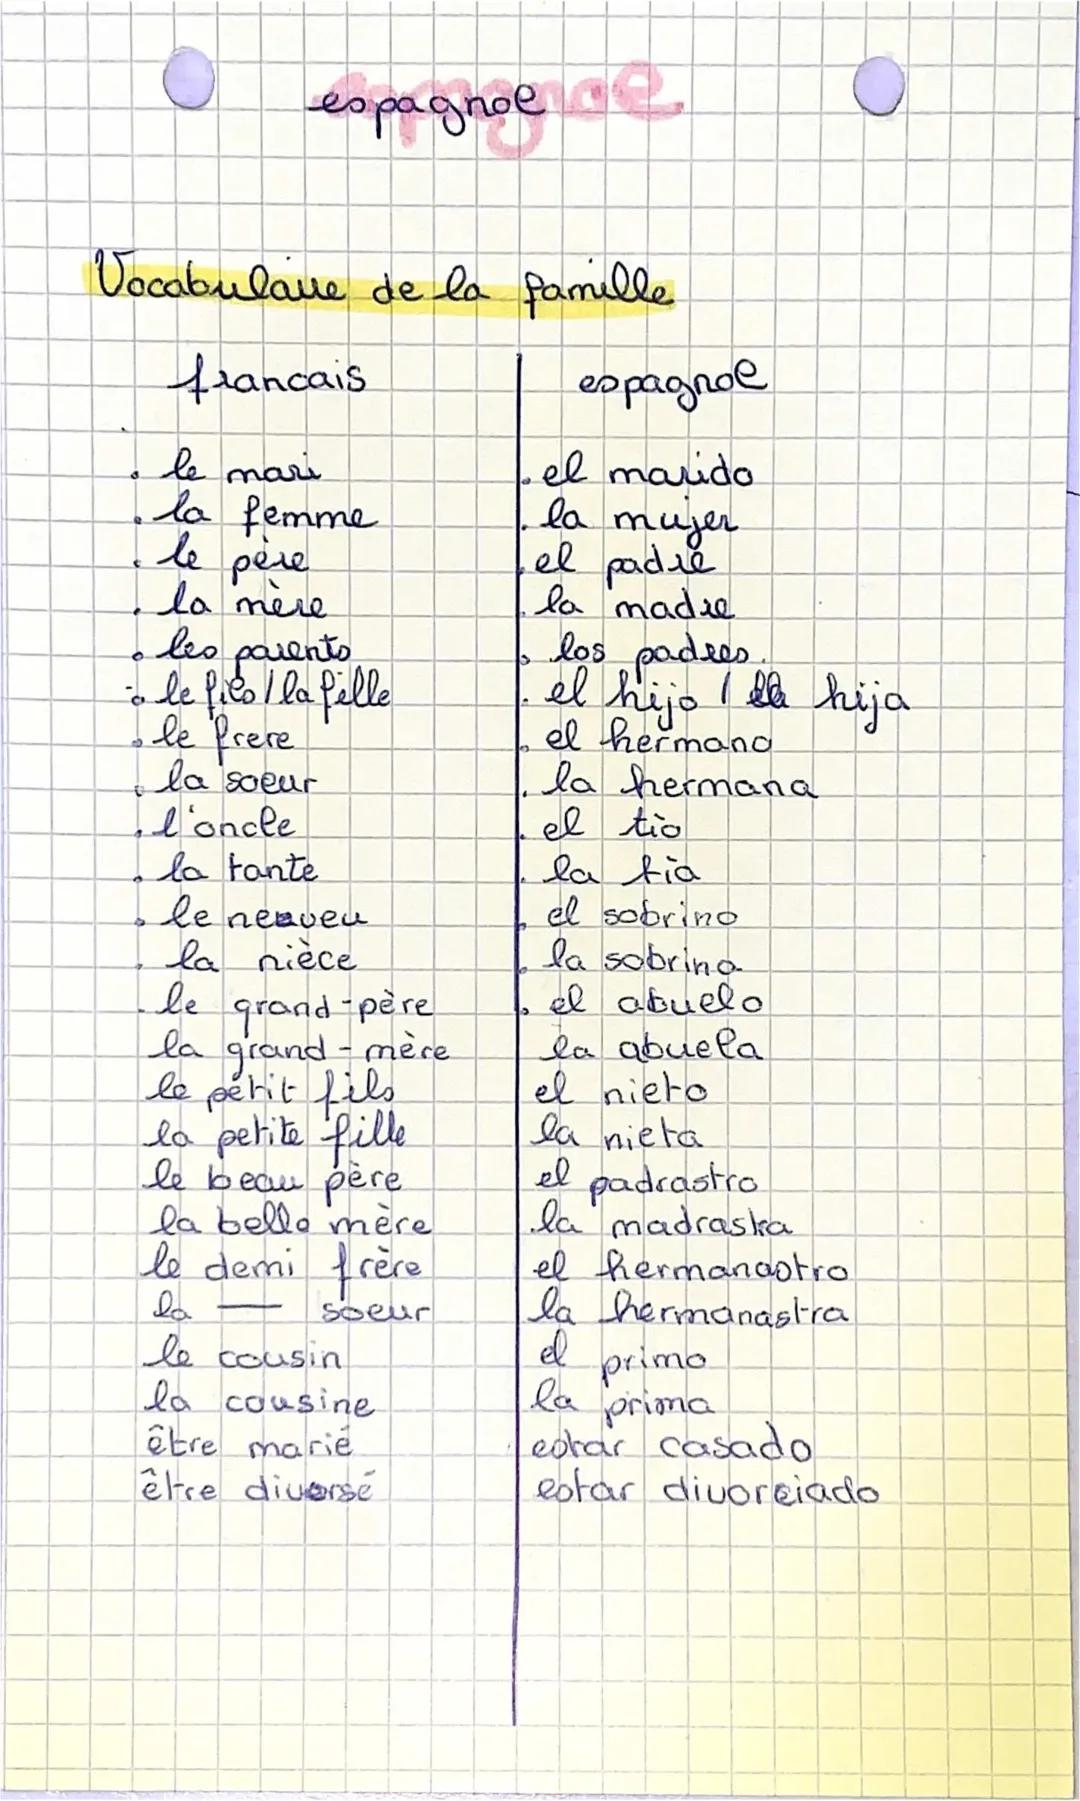 espagnol
Vocabulaire de la famille
francais espagnol
. le mari . el marido
. la femme . la mujer
. le père . el padre
. la mère . la madre
. les parents . los padres.
. le fils / la fille . el hijo / la hija
. le frere . el hermano
. la soeur . la hermana
. l'oncle . el tio
. la tante . la tia
. le neuveu . el sobrino
. la nièce . la sobrina
. le grand-père . el abuelo
la grand-mère la abuela
le petit fils el nieto
la petite fille la nieta
le beau père el padrastro
la belle mère . la madrastra
le demi frère el hermanastro
la — soeur la hermanastra
le cousin el primo
la cousine la prima
être marié estar casado
être diversé estar divorciado